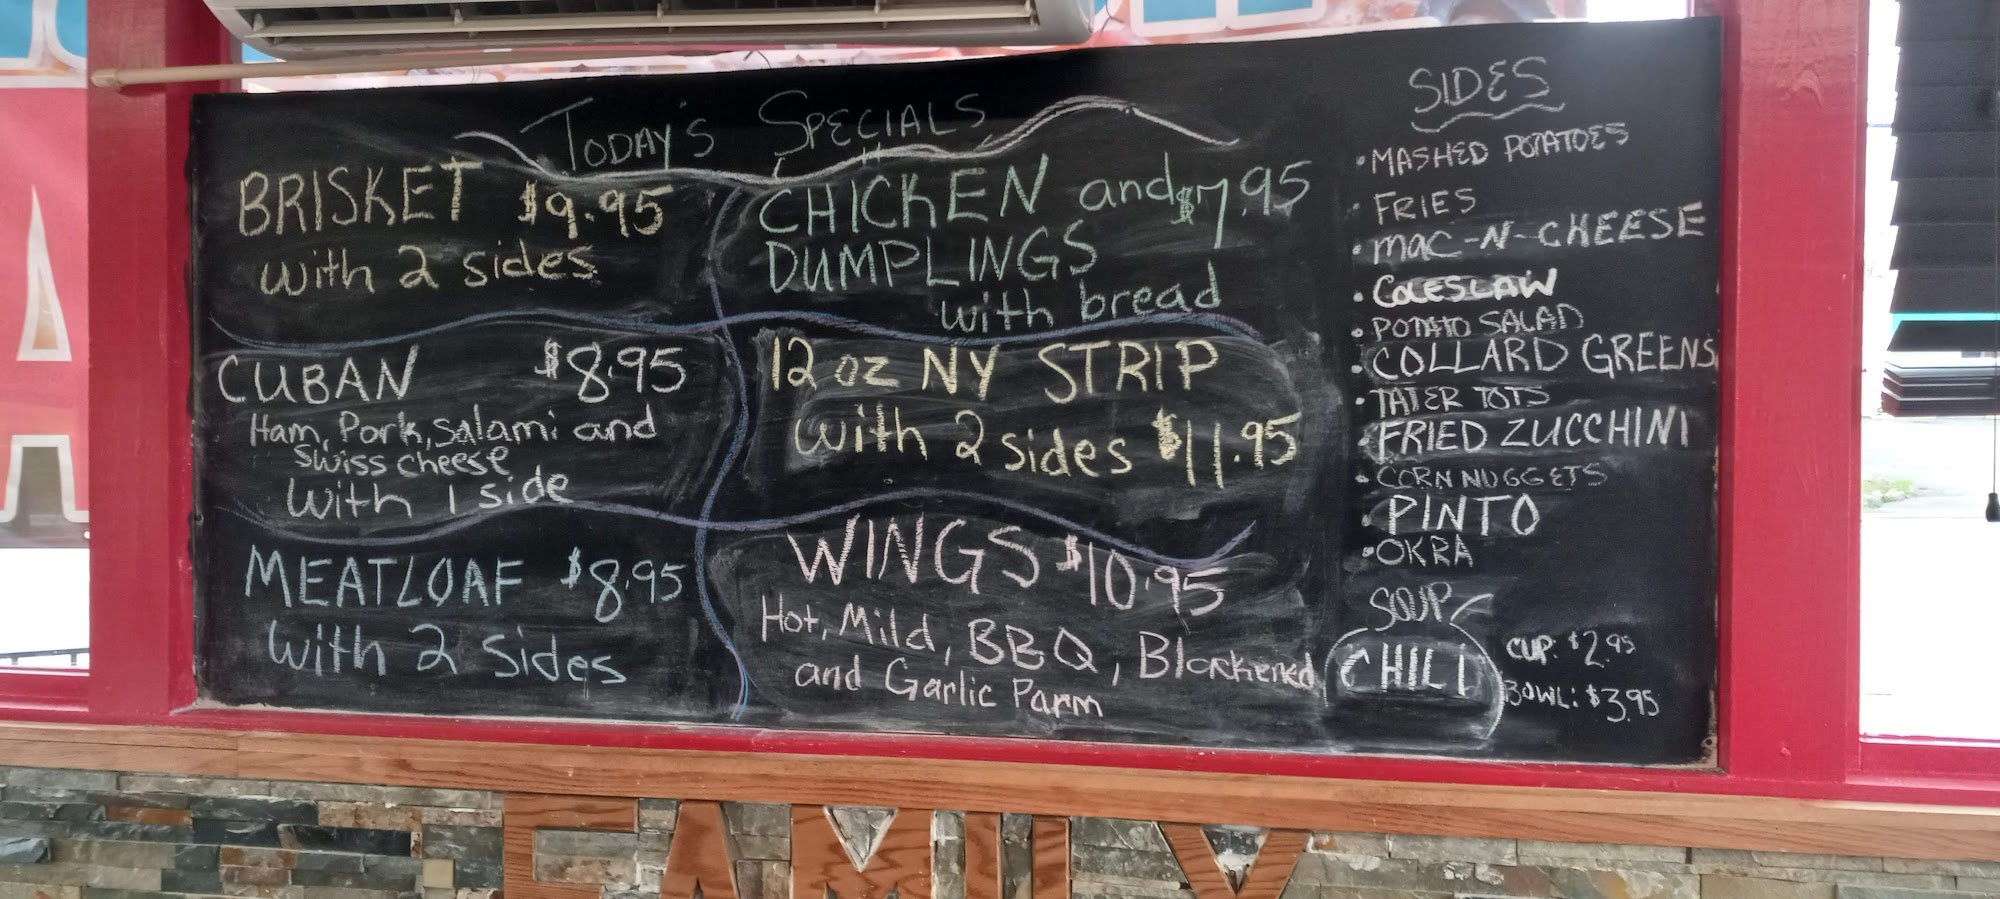 TODAY'S SPECIALS
BRISKET $9.95
with 2 sides
CUBAN $8.95
Ham, Pork, Salami and
Swiss cheese
with 1 side
MEATLOAF $8.95
with 2 sides
CHICKEN and $7.95
DUMPLINGS
with bread
12 oz NY STRIP
with 2 sides $11.95
WINGS $10.95
Hot, Mild, BBQ, Blackened
and Garlic Parm
SIDES
• MASHED POTATOES
• FRIES
• MAC-N-CHEESE
• COLESLAW
• POTATO SALAD
• COLLARD GREENS
• TATER TOTS
• FRIED ZUCCHINI
• CORN NUGGETS
• PINTO
• OKRA
SOUP
CHILI
CUP: $2.95
BOWL: $3.95
FAMILY